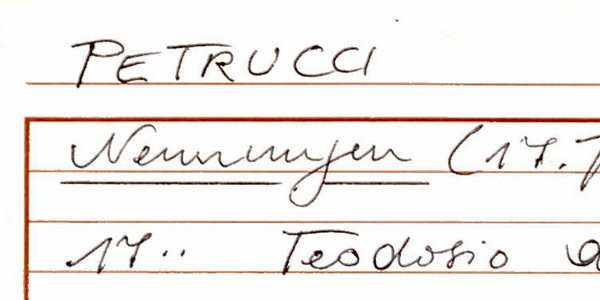 PETRUCCI
Nennungen (17.
17.. Teodosio